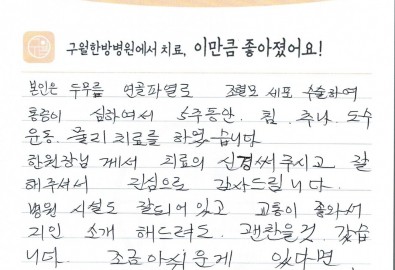 구월한방병원에서 치료, 이만큼 좋아졌어요!
본인은 두무릎 연골파열로 조혈모 세포 수술하여
통증이 심하여서 5주동안. 침. 추나. 도수
운동. 물리치료를 하였습니다
한원장님 께서 치료의 신경써주시고 잘
해주셔서 진심으로 감사드립니다.
병원 시설도 잘되어있고 교통이 좋아서
지인 소개 해드려도. 괜찮을것 같습
니다. 조금아쉬운게 있다면